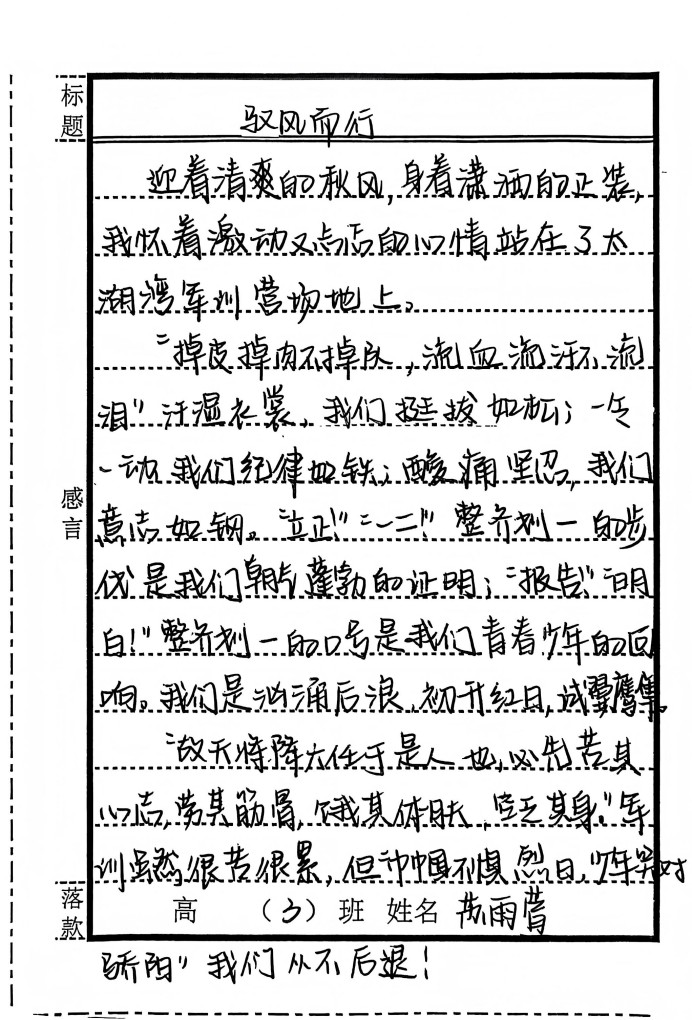 标题
驭风而行
迎着清爽的秋风,身着潇洒的正装,
我怀着激动又忐忑的心情站在了太
湖湾军训营场地上。
“掉皮掉肉不掉队,流血流汗不流
泪”汗湿衣裳,我们挺拔如松;一令
一动,我们纪律如铁;酸痛坚忍,我们
意志如钢。“立正!”“一二!”整齐划一的步
伐是我们朝气蓬勃的证明;“报告!”“明
白!”整齐划一的口号是我们青春少年的回
响。我们是汹涌后浪,初升红日,试翼鹰隼。
感言
“故天将降大任于是人也,必先苦其
心志,劳其筋骨,饿其体肤,空乏其身。”军
训虽然很苦很累,但“中国不惧烈日,少年笑对
落款
高 (3) 班 姓名 雨
骄阳”我们从不后退!